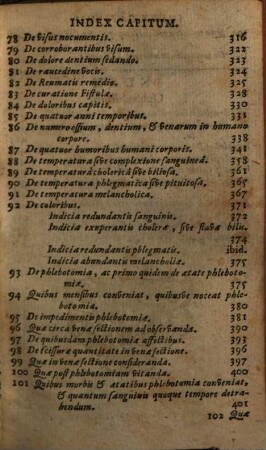 INDEX CAPITUM.
78 De visus nocumentis. 316
79 De corroborantibus visum. 322
80 De dolore dentium sedando. 323
81 De raucedine vocis. 324
82 De Reumatis remedio. 325
83 De curatione Fistulæ. 328
84 De doloribus capitis. 330
85 De quatuor anni temporibus. 331
86 De numero ossium, dentium, & venarum in humano
corpore. 338
87 De quatuor humoribus humani corporis. 341
88 De temperatura sive complexione sanguinea. 358
89 De temperatura cholerica sive biliosa. 363
90 De temperatura phlegmatica sive pituitosa. 365
91 De temperatura melancholica. 367
92 De coloribus. 371
Indicia redundantis sanguinis. 372
Indicia exuperantis choleræ, sive flavæ bilis.
374
Indicia redundantis phlegmatis. ibid.
Indicia abundantis melancholiæ. 375
93 De phlebotomia, ac primo quidem de ætate phlebotomiæ.
375
94 Quibus mensibus conveniat, quibusve noceat phlebotomia.
380
95 De impedimentis phlebotomiæ. 383
96 Quæ circa venæ sectionem ad observanda. 390
97 De quibusdam phlebotomiæ affectibus. 393
98 De scissuræ quantitate in venæ sectione. 396
99 Quæ in venæ sectione consideranda. 397
100 Quæ post phlebotomiam vitanda. 400
101 Quibus morbis & ætatibus phlebotomia conveniat,
& quantum sanguinis quoque tempore detrahendum.
401
102 Quæ